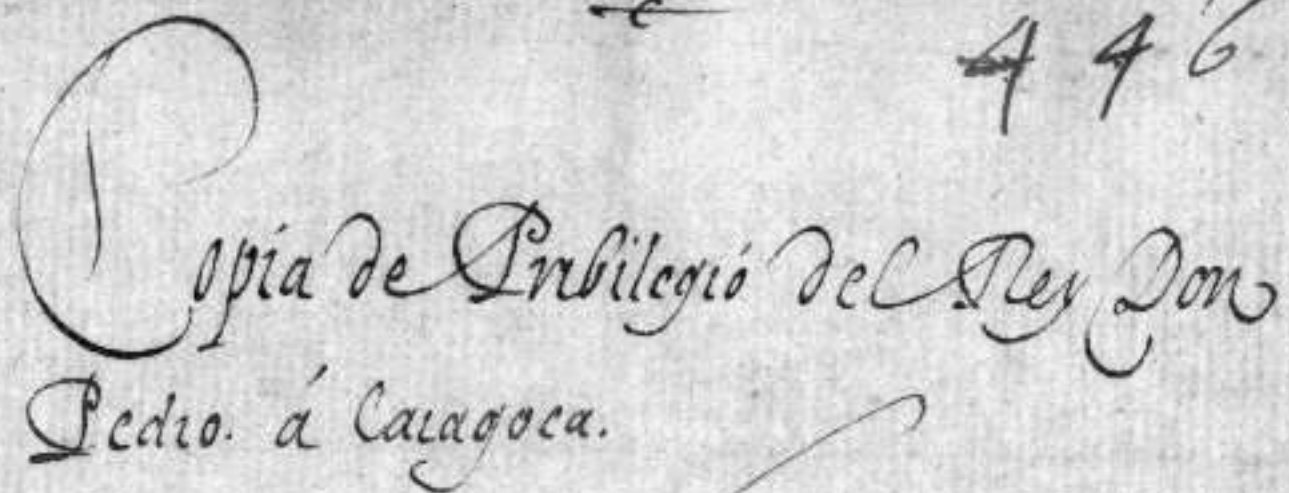 446
Copia de Pribilegió del Rey Don
Pedro. á Caragoca.